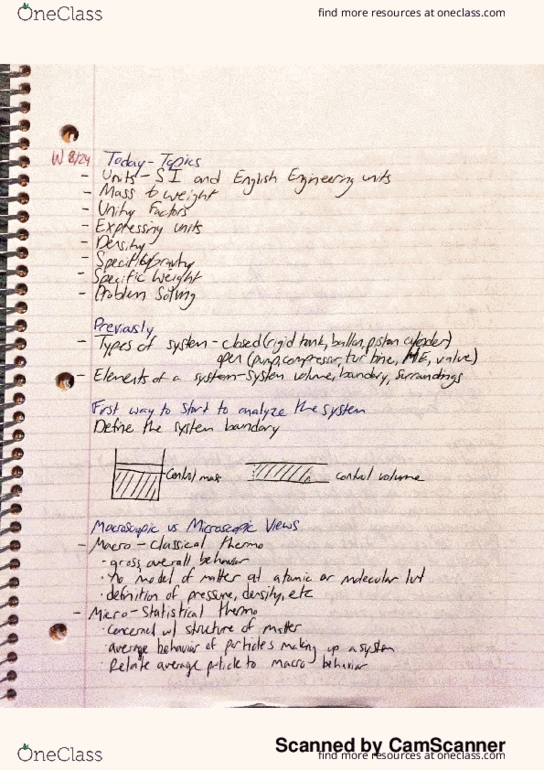 OneClass
find more resources at oneclass.com
W 8/24 Today-Topics
- Units-SI and English Engineering units
- Mass to weight
- Unity Factors
- Expressing units
- Density
- Specific gravity
- Specific Weight
- Problem Solving
Previously
- Types of system-closed (rigid tank, ballon, piston cylinder)
open (pump, compressor, turbine, HE, valve)
- Elements of a system-system volume, boundary, surroundings
First way to start to analyze the system
Define the system boundary
Control mass
control volume
Macroscopic vs Microscopic Views
- Macro-Classical thermo
· gross, overall behavior
· No model of matter at atomic or molecular lvl
· definition of pressure, density, etc
- Micro-Statistical thermo
· concerned w/ structure of matter
· average behavior of particles making up a system
· Relate average particle to macro behavior
Scanned by CamScanner
OneClass
find more resources at oneclass.com